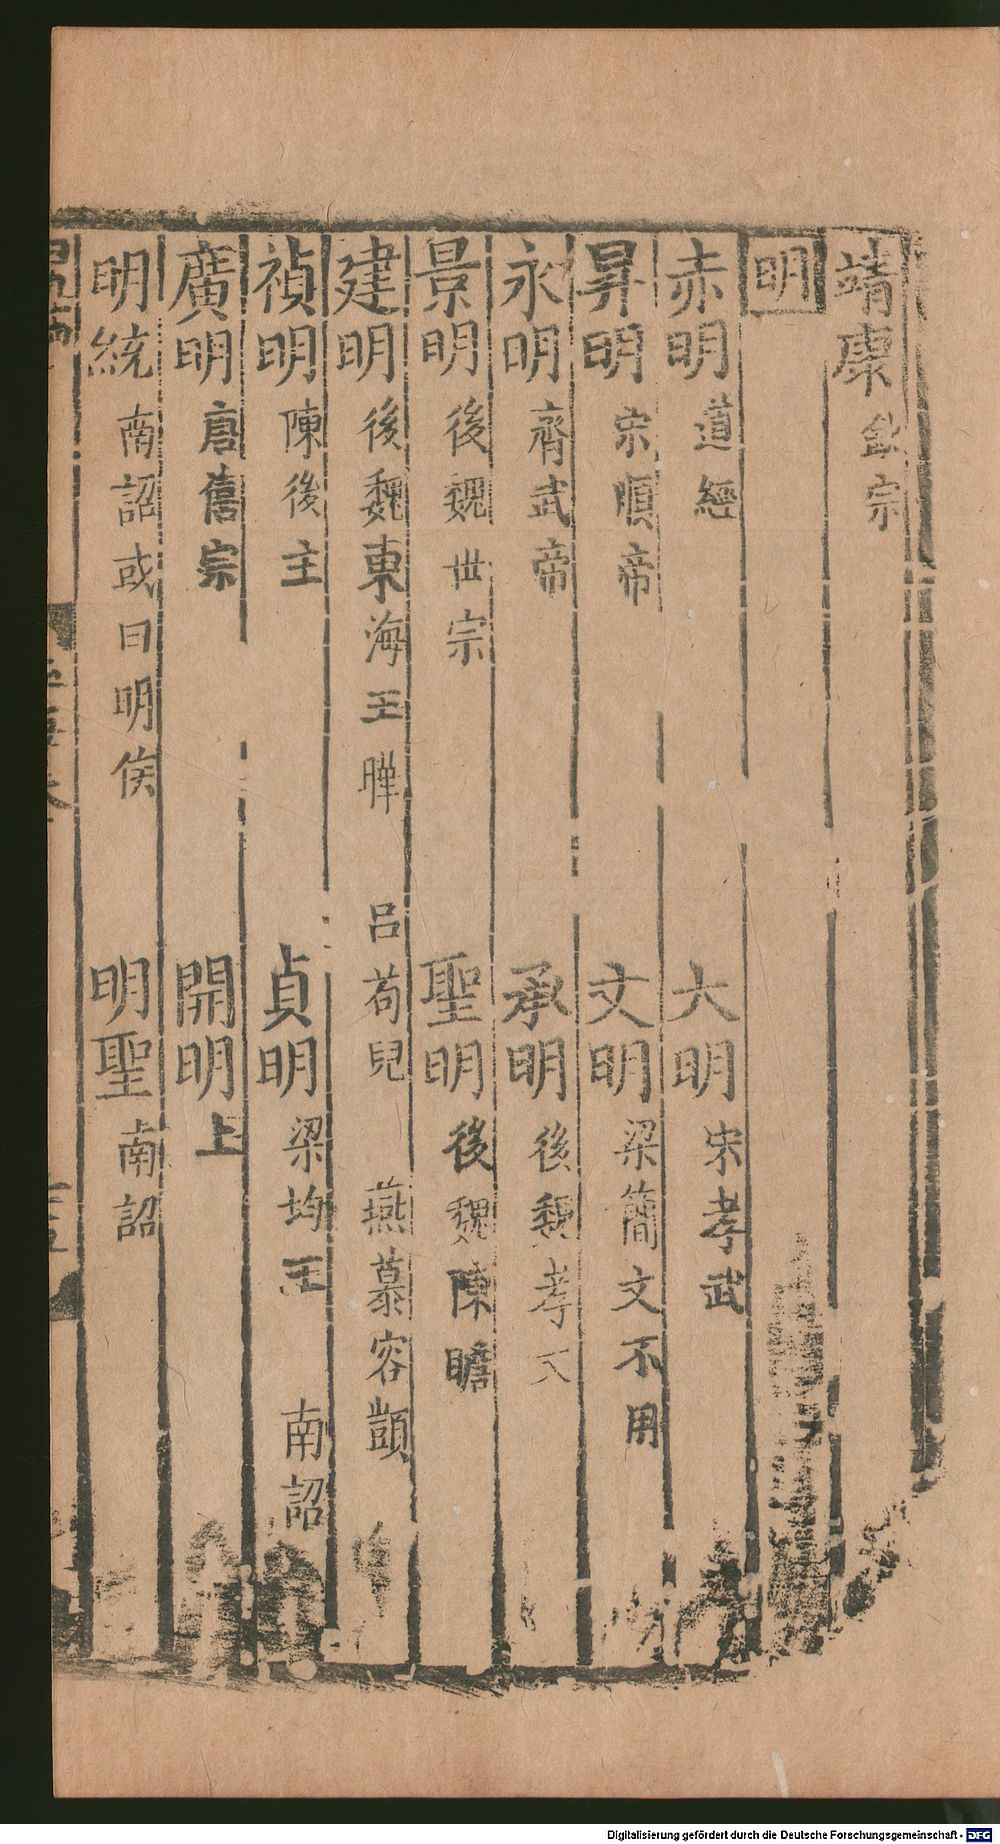 靖康 欽宗
明
赤明 道經 大明 宋孝武
昇明 宋順帝 文明 梁簡文不用
永明 齊武帝 承明 後魏孝文
景明 後魏世宗 聖明 後魏陳瞻
建明 後魏東海王曄 呂苟兒 燕慕容顗
禎明 陳後主 貞明 梁均王 南詔
廣明 唐僖宗 開明 上
明統 南詔或曰明侯 明聖 南詔
Digitalisierung gefördert durch die Deutsche Forschungsgemeinschaft - DFG